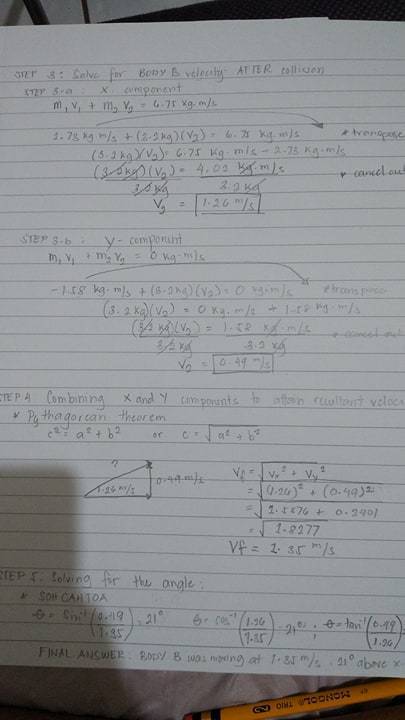 STEP 3: Solve for BODY B velocity AFTER collision
STEP 3-a : X component
m₁v₁ + m₂v₂ = 6.75 kg·m/s
2.73 kg m/s + (3.2kg)(v₂) = 6.75 kg·m/s * transpose
(3.2kg)(v₂) = 6.75 kg·m/s - 2.73 kg·m/s
(3.2kg)(v₂) = 4.02 kg·m/s * cancel out
3.2kg 3.2kg
V₂ = 1.26 m/s
STEP 3-b : Y- component
m₁v₁ + m₂v₂ = 0 kg·m/s
-1.58 kg·m/s + (3.2kg)(v₂) = 0 kg·m/s * transpose
(3.2kg)(v₂) = 0 kg·m/s + 1.58 kg·m/s
(3.2kg)(v₂) = 1.58 kg·m/s * cancel out
3.2kg 3.2kg
V₂ = 0.49 m/s
STEP 4 Combining X and Y components to attain resultant veloci
* Pythagorean theorem
c² = a² + b² or c = √a² + b²
? 0.49 m/s 1.26 m/s
Vf = √Vx² + Vy²
= √(1.26)² + (0.49)²
= √1.5876 + 0.2401
= √1.8277
Vf = 1.35 m/s
STEP 5: Solving for the angle:
* SOH CAH TOA
θ = sin⁻¹(0.49/1.35) = 21° θ = cos⁻¹(1.26/1.35) = 21° ; θ = tan⁻¹(0.49/1.26)
FINAL ANSWER: BODY B was moving at 1.35 m/s, 21° above x-
MONGOL TRIO 2